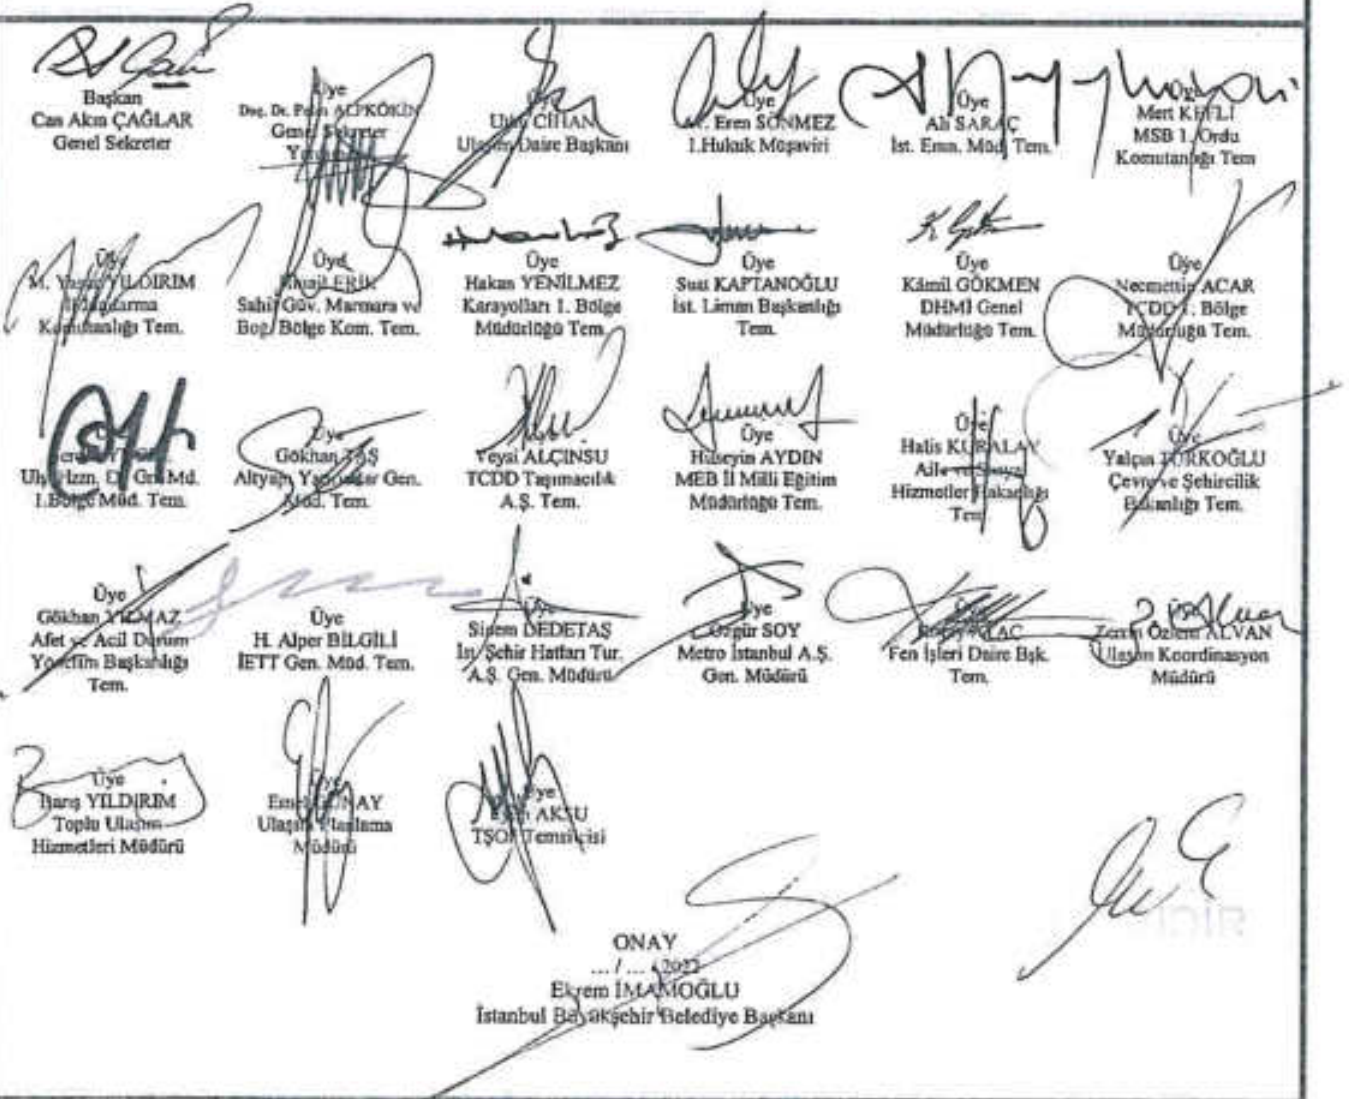 Başkan
Can Akın ÇAĞLAR
Genel Sekreter
Üye
Doç. Dr. Pelin ALPKÖKİN
Genel Sekreter
Üye
CİHAN
Ulaşım Daire Başkanı
Üye
Eren SÖNMEZ
1.Hukuk Müşaviri
Üye
Ali SARAÇ
İst. Emn. Müd. Tem.
Mert KEFLİ
MSB 1. Ordu
Komutanlığı Tem
Üye
M. YILDIRIM
İl Jandarma
Komutanlığı Tem.
Üye
ERİK
Sahil Güv. Marmara ve
Boğ. Bölge Kom. Tem.
Üye
Hakan YENİLMEZ
Karayolları 1. Bölge
Müdürlüğü Tem.
Üye
Suat KAPTANOĞLU
İst. Liman Başkanlığı
Tem.
Üye
Kâmil GÖKMEN
DHMİ Genel
Müdürlüğü Tem.
Üye
Necmettin ACAR
TCDD 1. Bölge
Müdürlüğü Tem.
Md.
1.Bölge Müd. Tem.
Üye
Gökhan TAŞ
Altyapı Yatırımlar Gen.
Müd. Tem.
Veysi ALÇINSU
TCDD Taşımacılık
A.Ş. Tem.
Üye
Hüseyin AYDIN
MEB İl Milli Eğitim
Müdürlüğü Tem.
Üye
Halis KURALAY
Aile ve Sosyal
Hizmetler Bakanlığı
Tem.
Üye
Yalçın TÜRKOĞLU
Çevre ve Şehircilik
Bakanlığı Tem.
Üye
Gökhan YILMAZ
Afet ve Acil Durum
Yönetim Başkanlığı
Tem.
Üye
H. Alper BİLGİLİ
İETT Gen. Müd. Tem.
Üye
Sinem DEDETAŞ
İst. Şehir Hatları Tur.
A.Ş. Gen. Müdürü
Üye
Özgür SOY
Metro İstanbul A.Ş.
Gen. Müdürü
Fen İşleri Daire Bşk.
Tem.
Üye
Özlem ALVAN
Ulaşım Koordinasyon
Müdürü
Üye
Barış YILDIRIM
Toplu Ulaşım
Hizmetleri Müdürü
Üye
GÜNAY
Ulaşım Planlama
Müdürü
Üye
AKSU
TŞOF Temsilcisi
ONAY
... / ... / 2022
Ekrem İMAMOĞLU
İstanbul Büyükşehir Belediye Başkanı